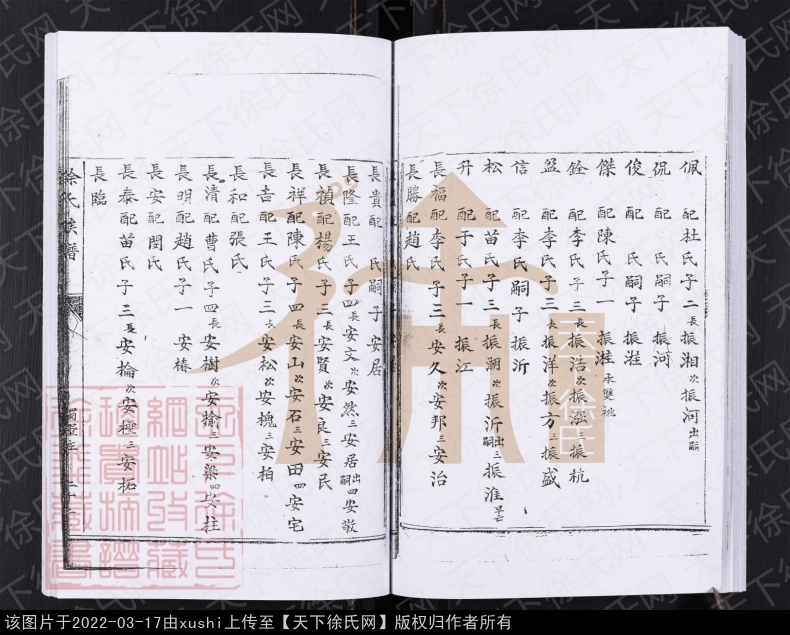 佩 配杜氏子二長振湘次振河出嗣
侃 配 氏嗣子 振河
俊 配 氏嗣子 振湦
傑 配陳氏子一 振湦承雙祧
銓 配李氏子三長振浩次振 三振杭
盆 配李氏子三長振洋次振方三振盛
信 配李氏嗣子 振沂
松 配苗氏子三長振潮次振沂出嗣三振淮
升 配于氏子一 振江
長福配李氏子三長安久次安邦三安治
長勝配趙氏
長貴配 氏嗣子安居
長隆配王氏子四長安文次安然三安居出嗣四安敬
長禎配楊氏子三長安賢次安良三安民
長祥配陳氏子四長安山次安石三安田四安宅
長吉配王氏子三長安松次安槐三安柏
長和配張氏
長清配曹氏子四長安樹次安榆三安梁四安柱
長明配趙氏子一 安椿
長安配閻氏
長泰配苗氏子三長安棆次安 三安柘
長臨
徐氏族譜
天下徐氏网
天下徐氏
该图片于2022-03-17由xushi上传至【天下徐氏网】版权归作者所有